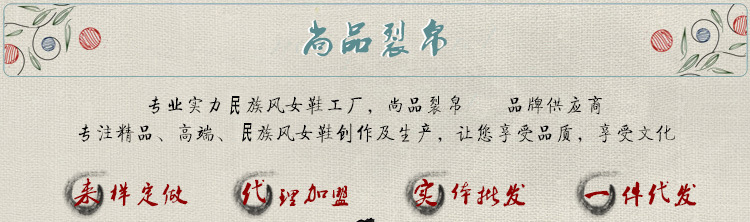 尚品裂帛
专业实力民族风女鞋工厂，尚品裂帛 品牌供应商
专注精品、高端、民族风女鞋创作及生产，让您享受品质，享受文化
来样定做 代理加盟 实体批发 一件代发